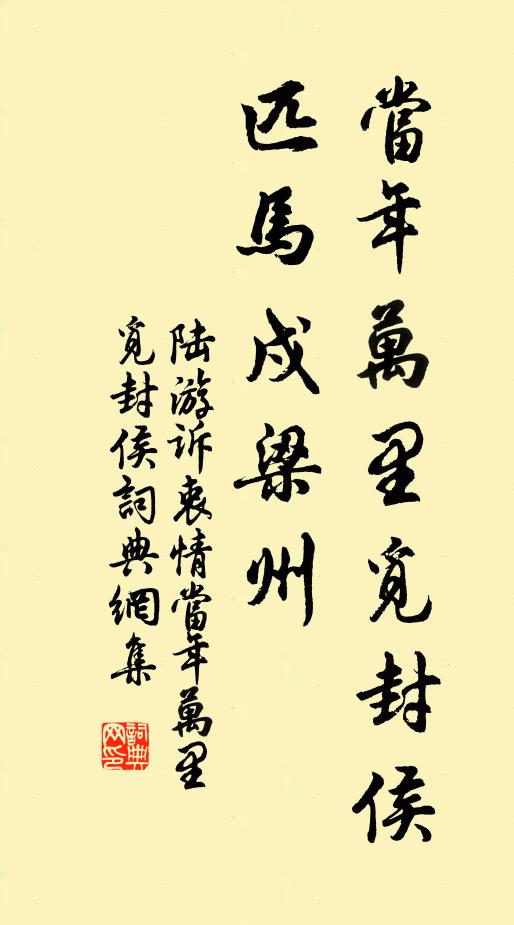 當年萬里覓封侯
匹馬戍梁州
陆游诉衷情當年萬里
覓封侯詞典網集
詞典
网印